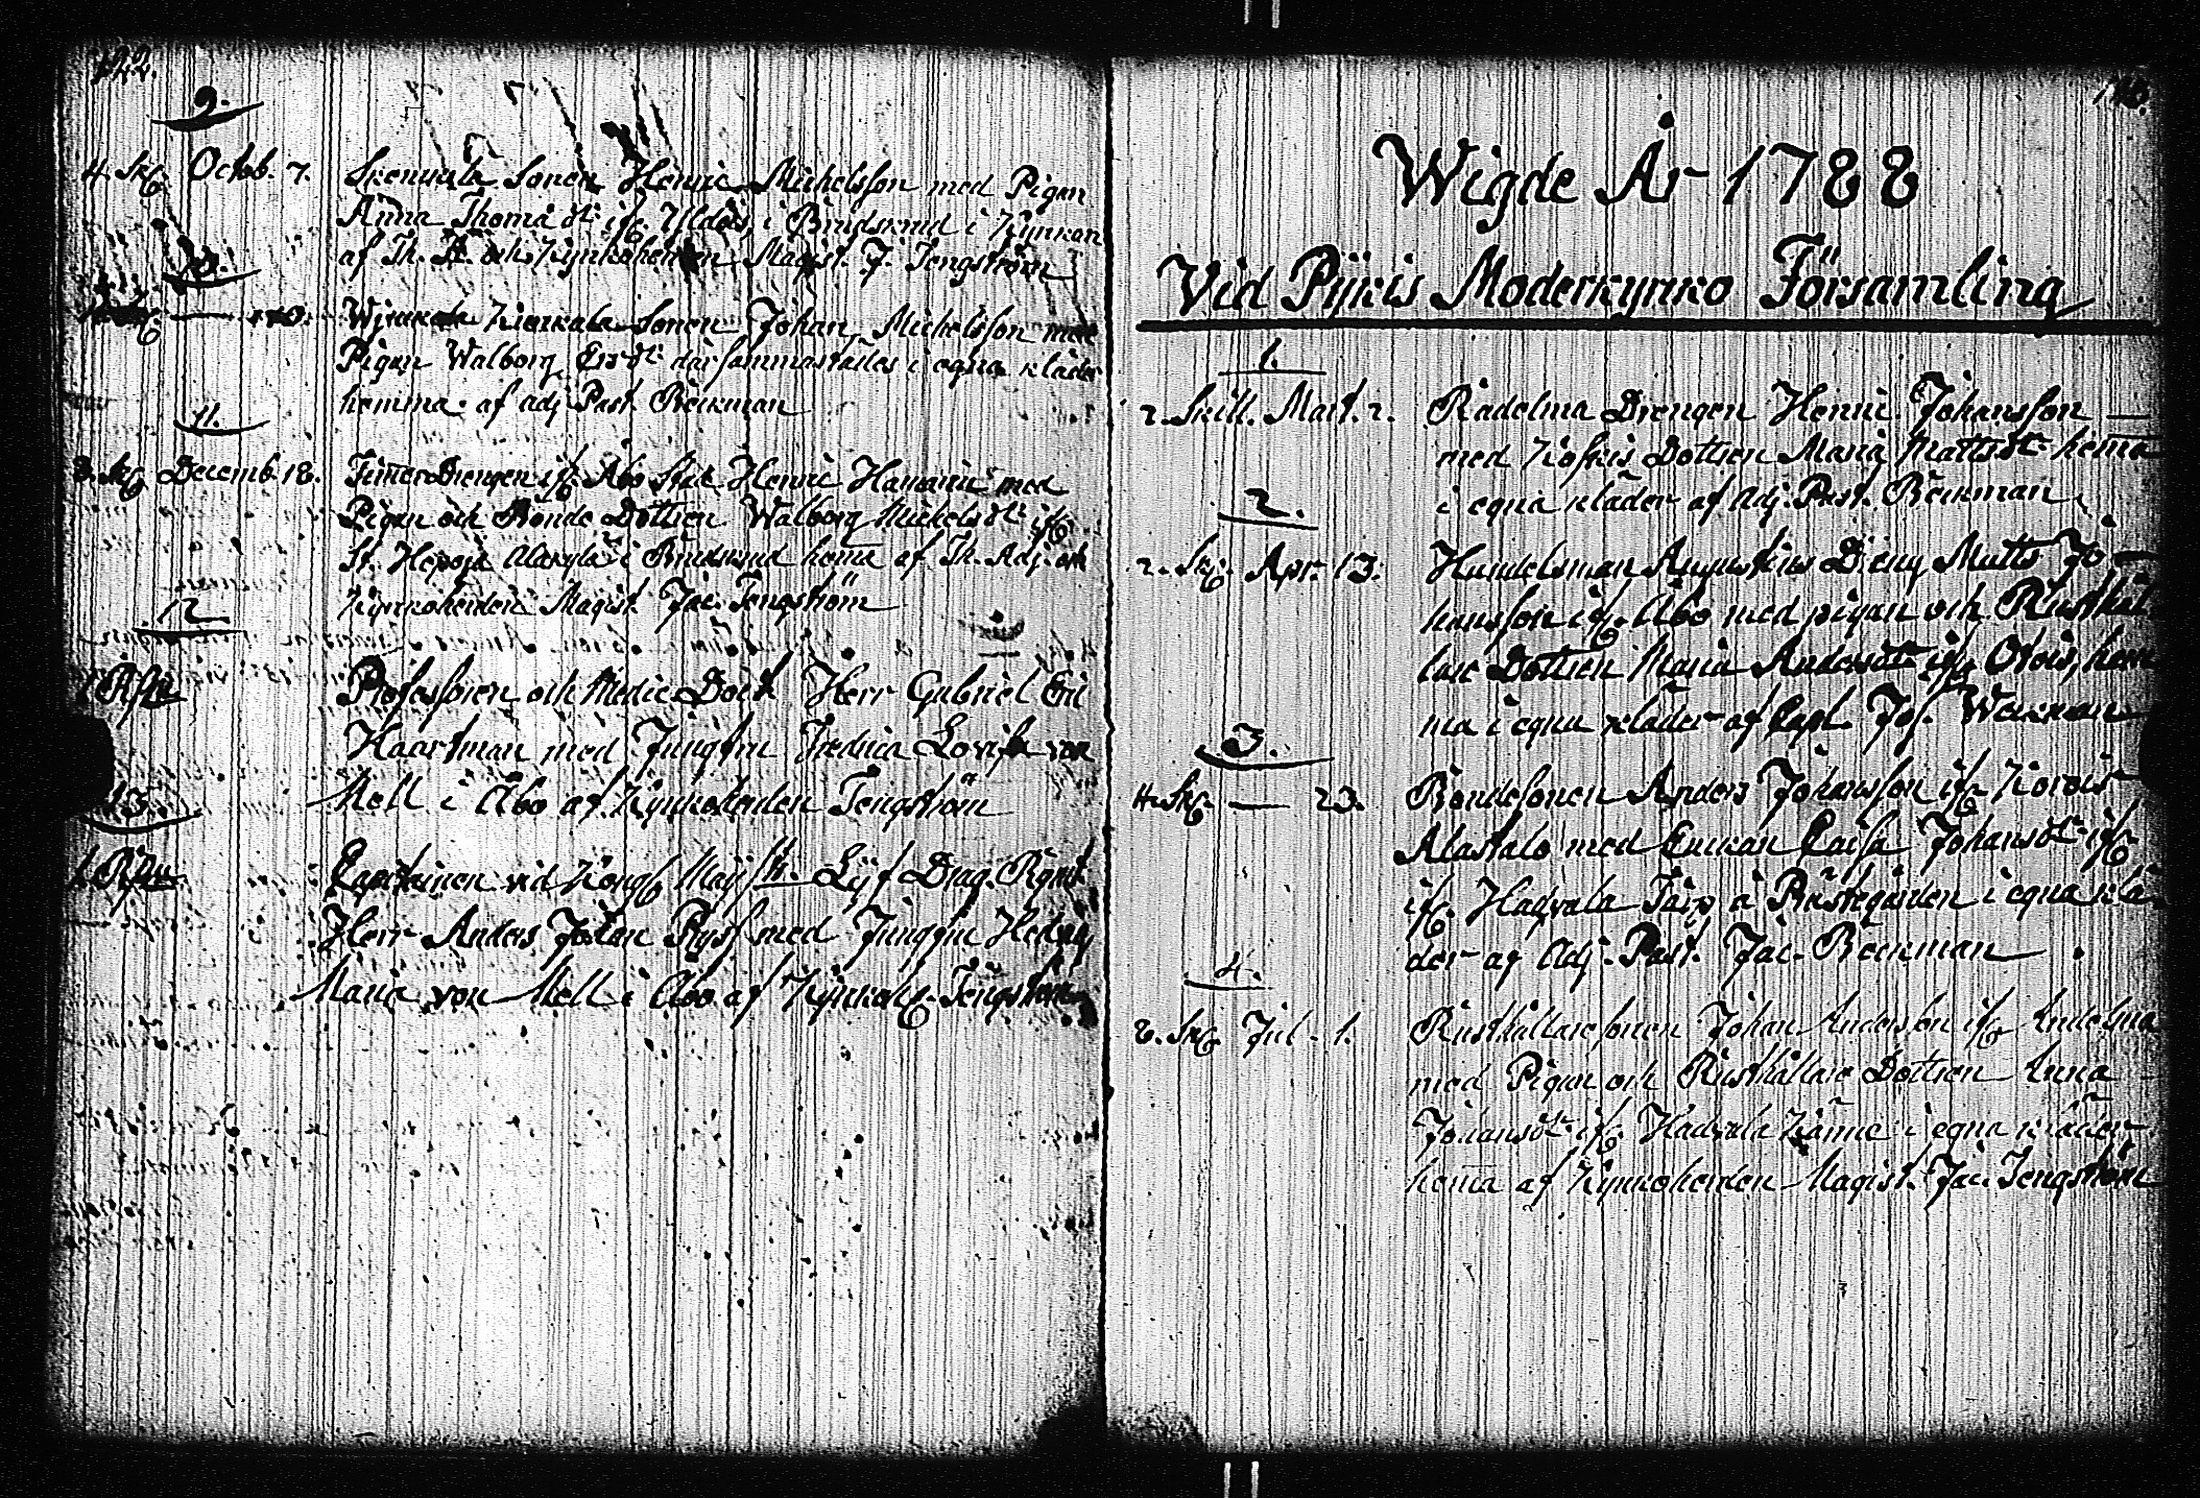 122.
9.
4. Sk. Octob. 7. Sonen Henric Michelsson med Pigan
Anna Thomæ dr ifr. i Brudskrud i Kyrckan
af Th. A. och Kyrkoherden Magist. J. Tengström
10.
Sonen Johan Michelsson med
Pigan Walborg Ersdr därsammastädes i egna kläder
hemma af Adj. Past. Böckman
11.
8. Sk. Decemb. 18. Timer Drengen ifr. Åbo Stad Henric med
Pigan och Bonde Dottren Walborg Michelsdr ifr.
St. Hepoja Alakylä i Brudskrud hema af Th. Adj. och
Kyrckoherden Magist. Jac. Tengström
12
1 Rdr Professoren och Medic. Doct. Herr Gabriel Eric
Haartman med Jungfru Fredrica Lovisa von
Mell i Åbo af Kyrckoherden Tengström
13.
1. Rdr Capitainen vid Kongl. Maj:st. Lijf Drag. Rgmt
Herr Anders Johan med Jungfru Hedvig
Maria von Mell i Åbo af Kyrckoh. Tengström
Wigde År 1788
Vid Pijkis Moderkyrko Församling
1.
2. Skill. Mart. 2. Radelma Drengen Henric Johansson
med Koskis Dottren Maria Mattsdr hema
i egna kläder af Adj. Past. Böckman
2.
2. Sk. Apr. 13. Handelsman Dreng Matts Jo
hansson ifr. Åbo med pigan och Rusthål
lare Dottren Maria Andersdr ifr. hem
ma i egna kläder af Capl. Jos. Weckman
3.
4. Sk. — 23. Bondesonen Anders Johansson ifr.
Alastalo med Enkan Caisa Johansdr ifr.
ifr. Hadvala Torp å Prästegården i egna klä
der af Adj. Past. Jac. Böckman
4.
8. Sk. Jul. 1. Rusthållare sonen Johan Andersson ifr.
med Pigan och Rusthållare Dottren Anna
Johansdr ifr. Hadvala i egna kläder
hema af Kyrckoherden Magist. Jac. Tengström